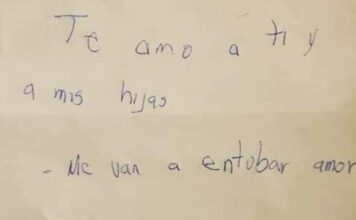 Te amo a ti y
a mis hijas
- Me van a entubar amor